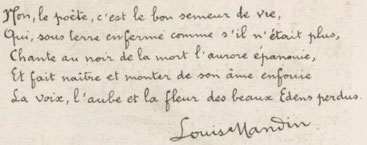 Non, le poëte, c'est le bon semeur de vie,
Qui, sous terre enfermé comme s'il n'était plus,
Chante au noir de la mort l'aurore épanouie,
Et fait naître et monter de son âme enfouie
La voix, l'aube et la fleur des beaux Edens perdus.
Louis Mandin